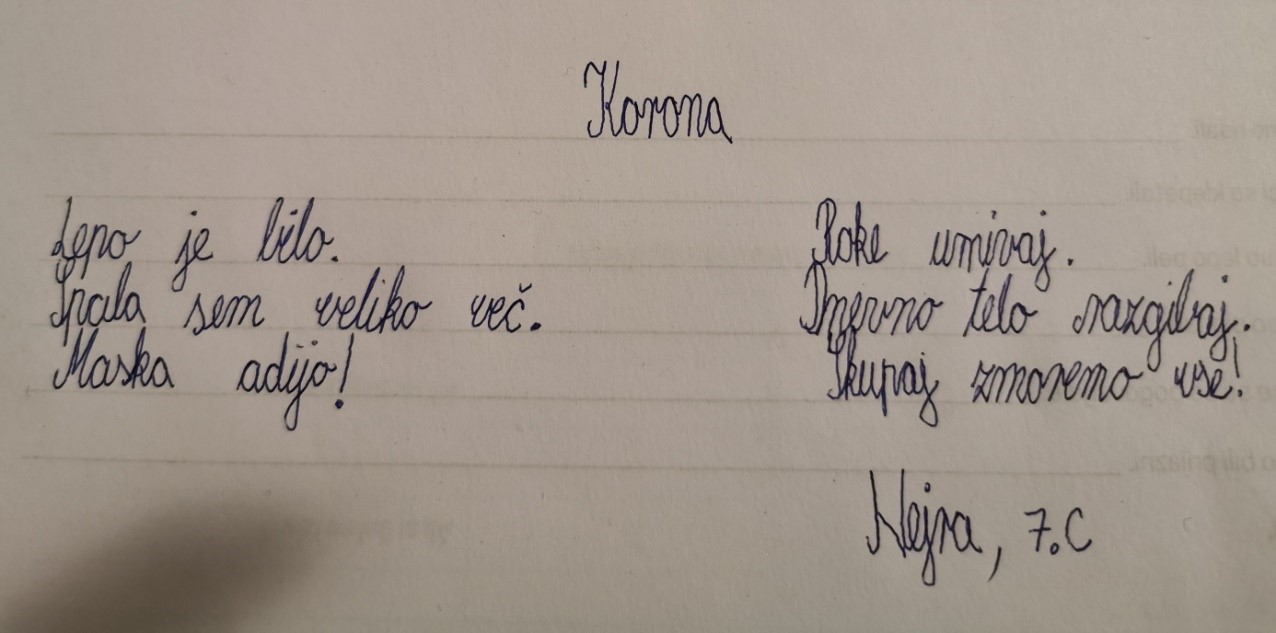 Korona
Lepo je bilo.
Spala sem veliko več.
Maska adijo!
Roke umivaj.
Dnevno telo razgibaj.
Skupaj zmoremo vse!
Nejra, 7.C